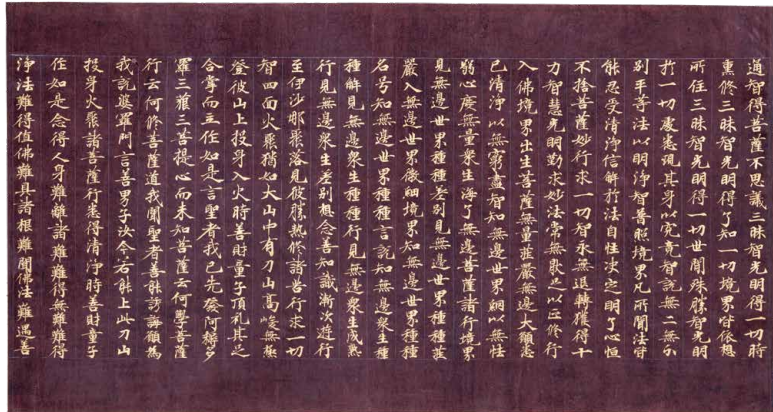 通智得菩薩不思議三昧智光明得一切時
熏修三昧智光明得了知一切境界皆依想
所住三昧智光明得一切世間殊勝智光明
於一切處悉現其身以究竟智說無二無分
別平等法以明淨智普照境界凡所聞法皆
能忍受清淨信解於法自性決定明了心恒
不捨菩薩妙行求一切智永無退轉獲得十
力智慧光明勤求妙法常無厭足以正修行
入佛境界出生菩薩無量莊嚴無邊大願悉
已清淨以無窮盡智知無邊世界網以無怯
弱心度無量衆生海了無邊菩薩諸行境界
見無邊世界種種差別見無邊世界種種莊
嚴入無邊世界微細境界知無邊世界種種
名号知無邊世界種種言說知無邊衆生種
種解見無邊衆生種種行見無邊衆生成熟
行見無邊衆生差別想念善知識漸次遊行
至伊沙那聚落見彼勝熱修諸苦行求一切
智四面火聚猶如大山中有刀山高峻無極
登彼山上投身入火時善財童子頂礼其足
合掌而立作如是言聖者我已先發阿耨多
羅三藐三菩提心而未知菩薩云何學菩薩
行云何修菩薩道我聞聖者善能誘誨願為
我說婆羅門言善男子汝今若能上此刀山
投身火聚諸菩薩行悉得清淨時善財童子
作如是念得人身難離諸難難得無難難得
淨法難得值佛難具諸根難聞佛法難遇善